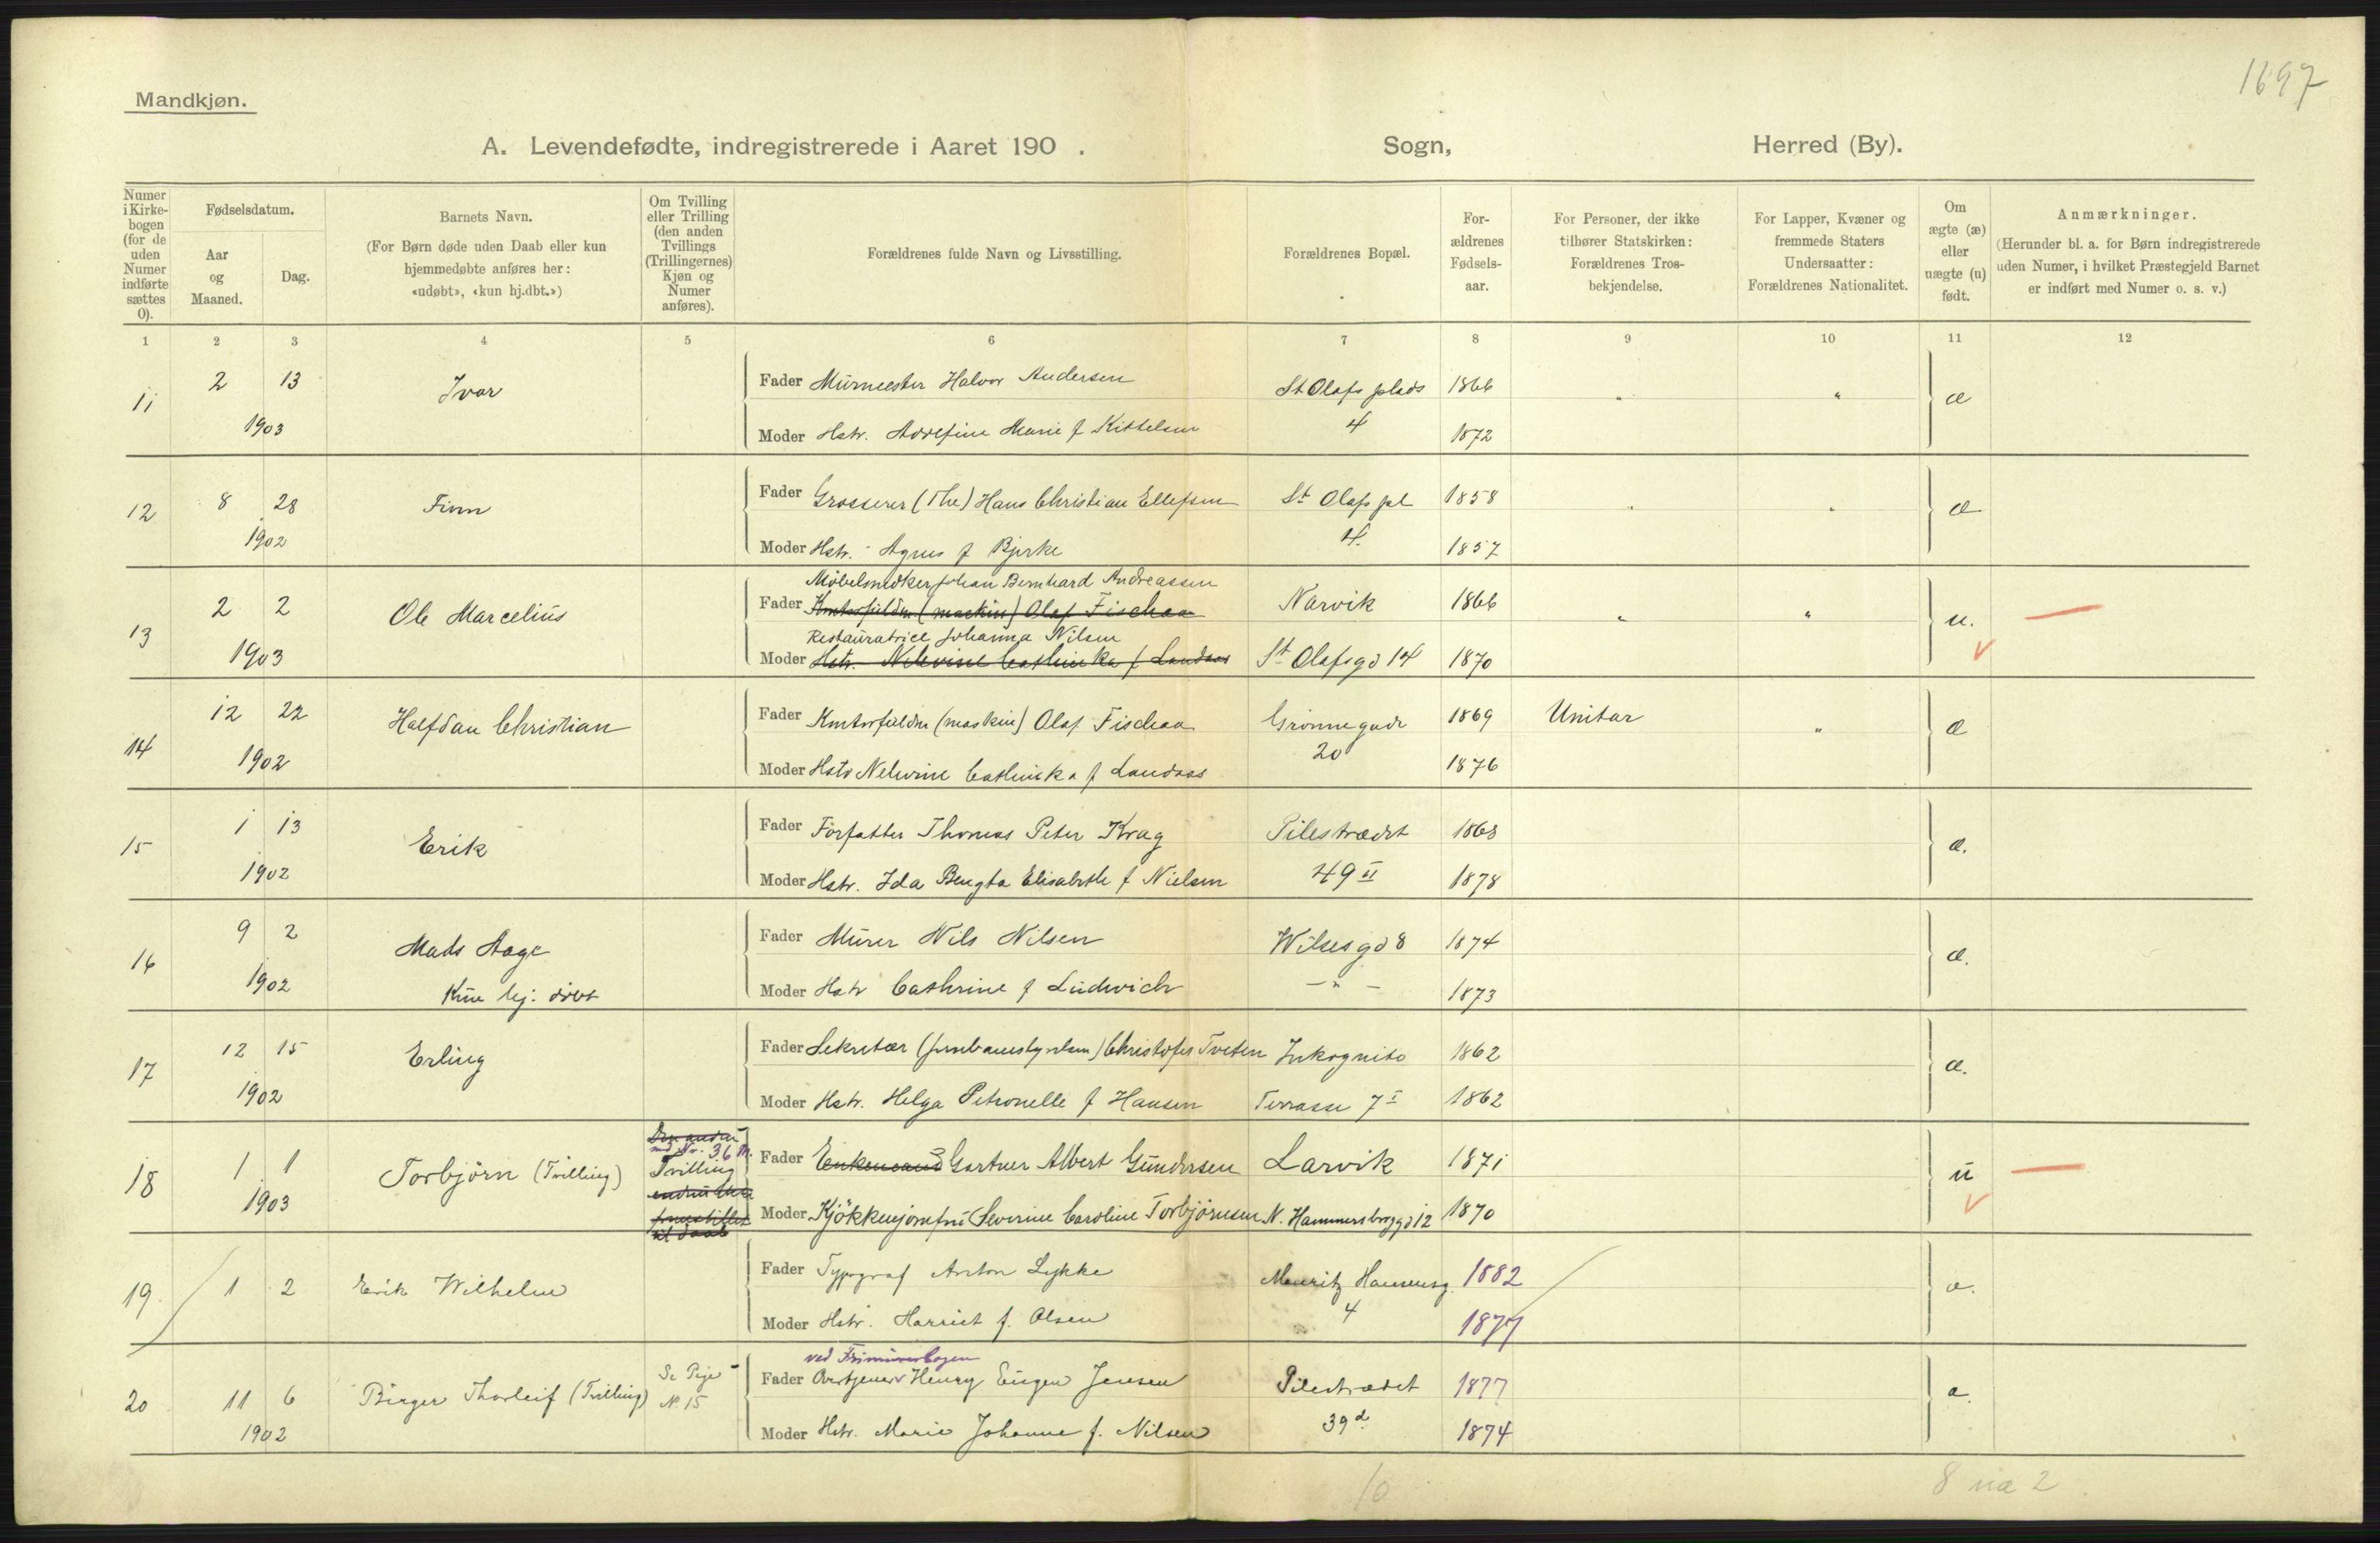 1697
Mandkjøn.
A. Levendefødte, indregistrerede i Aaret 190 . Sogn, Herred (By).
Numer i Kirkebogen (for de uden Numer indførte sættes 0).
Fødselsdatum.
Aar og Maaned.
Dag.
Barnets Navn.
(For Børn døde uden Daab eller kun hjemmedøbte anføres her: «udøbt», «kun hj.dbt.»)
Om Tvilling eller Trilling (den anden Tvillings (Trillingernes) Kjøn og Numer anføres).
Forældrenes fulde Navn og Livsstilling.
Forældrenes Bopæl.
Forældrenes Fødselsaar.
For Personer, der ikke tilhører Statskirken: Forældrenes Trosbekjendelse.
For Lapper, Kvæner og fremmede Staters Undersaatter: Forældrenes Nationalitet.
Om ægte (æ) eller uægte (u) født.
Anmærkninger.
(Herunder bl. a. for Børn indregistrerede uden Numer, i hvilket Præstegjeld Barnet er indført med Numer o. s. v.)
1 2 3 4 5 6 7 8 9 10 11 12
11 2 13 Ivar Fader Murmester Halvor Andersen St Olafs plads 1866 " " æ
1903 Moder Hstr. Marie f Kittelsen 4 1872
12 8 28 Finn Fader Grosserer (The) Hans Christian Ellefsen St Olafs pl 1858 " " æ
1902 Moder Hstr. Agnes f Bjerke 4. 1857
Møbelsnedker Johan Bernhard Andreassen
13 2 2 Ole Marcelius Fader Kontorfuldm (maskin) Olaf Fischaa Narvik 1866 " " u.
Restauratrice Johanna Nilsen
1903 Moder Hstr. Nelvine Cathinka f Landaas St Olafsgd 14 1870
14 12 22 Halfdan Christian Fader Kontorfuldm (maskin) Olaf Fischaa Grønnegade 1869 Unitar " æ
1902 Moder Hstr Nelvine Cathinka f Landaas 20 1876
15 1 13 Erik Fader Forfatter Thomas Peter Krag Pilestrædet 1868 æ.
1902 Moder Hstr. Ida Bengta Elisabeth f Nielsen 49 II 1878
16 9 2 Mads Aage Fader Murer Nils Nilsen Wilsesgd 8 1874 æ.
1902 Kun hj. døbt Moder Hstr Cathrine f Ludwich — " — 1873
17 12 15 Erling Fader Sekretær (Jernbanestyrelsen) Christofer Tveten Inkognito 1862 æ.
1902 Moder Hstr. Helga Petronelle f Hansen Terrasse 7 I 1862
Den anden
med Nr. 36 M.
18 1 1 Torbjørn (Tvilling) Tvilling Fader Enkemand Gartner Albert Gundersen Larvik 1871 u
1903 Moder Kjøkkenjomfru Severine Caroline Torbjørnsen N. Hammersborggd 12 1870
19 1 2 Erik Wilhelm Fader Typograf Anton Lykke Mauritz Hansensg. 1882 æ.
Moder Hstr. Harriet f. Olsen 4 1877
ved Frimurerlogen
20 11 6 Birger Thorleif (Tvilling) Se Pige N. 15 Fader Overtjener Henry Eugen Jensen Pilestrædet 1877 æ.
1902 Moder Hstr. Marie Johanne f. Nilsen 39 d. 1874
10 8 uæ 2